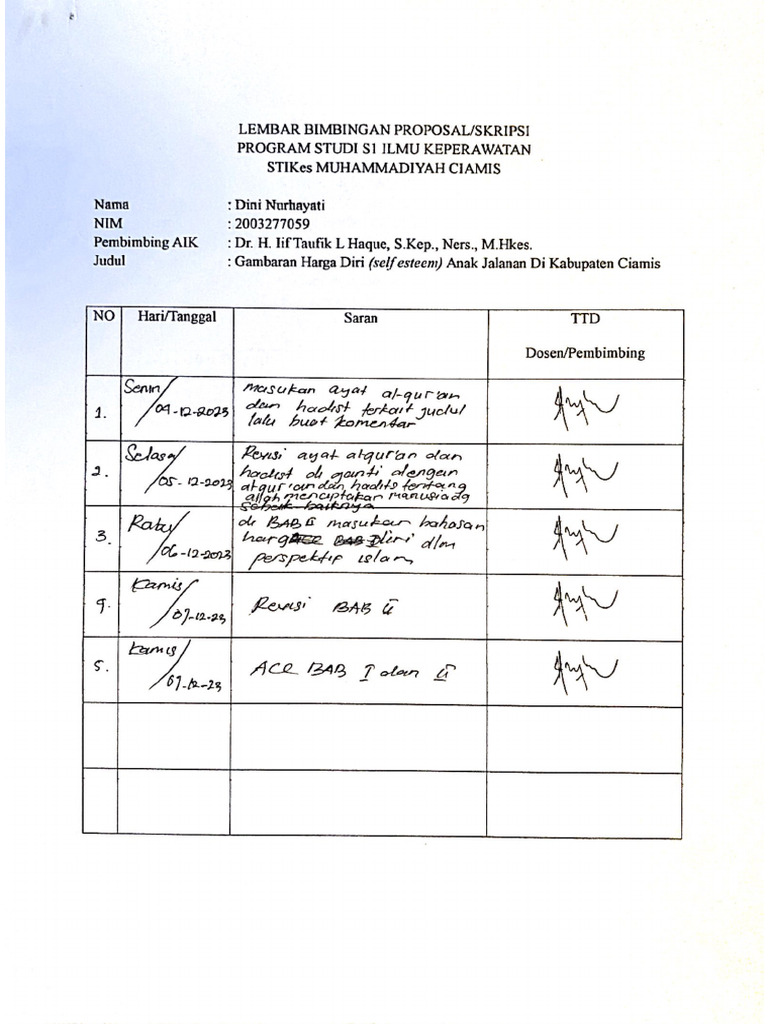 LEMBAR BIMBINGAN PROPOSAL/SKRIPSI
PROGRAM STUDI S1 ILMU KEPERAWATAN
STIKes MUHAMMADIYAH CIAMIS
Nama : Dini Nurhayati
NIM : 2003277059
Pembimbing AIK : Dr. H. Iif Taufik L Haque, S.Kep., Ners., M.Hkes.
Judul : Gambaran Harga Diri (self esteem) Anak Jalanan Di Kabupaten Ciamis
NO Hari/Tanggal Saran TTD
Dosen/Pembimbing
1. Senin/04-12-2023
masukan ayat al-qur'an
dan hadist terkait judul
lalu buat komentar
2. Selasa/05-12-2023
Revisi ayat alqur'an dan
hadist di ganti dengan
alqur'an dan hadits tentang
allah menciptakan manusia dg
sebaik baiknya
3. Rabu/06-12-2023
di BAB II masukan bahasan
harga diri dlm
perspektif islam
4. Kamis/07-12-23
Revisi BAB II
5. Kamis/07-12-23
ACC BAB I dan II